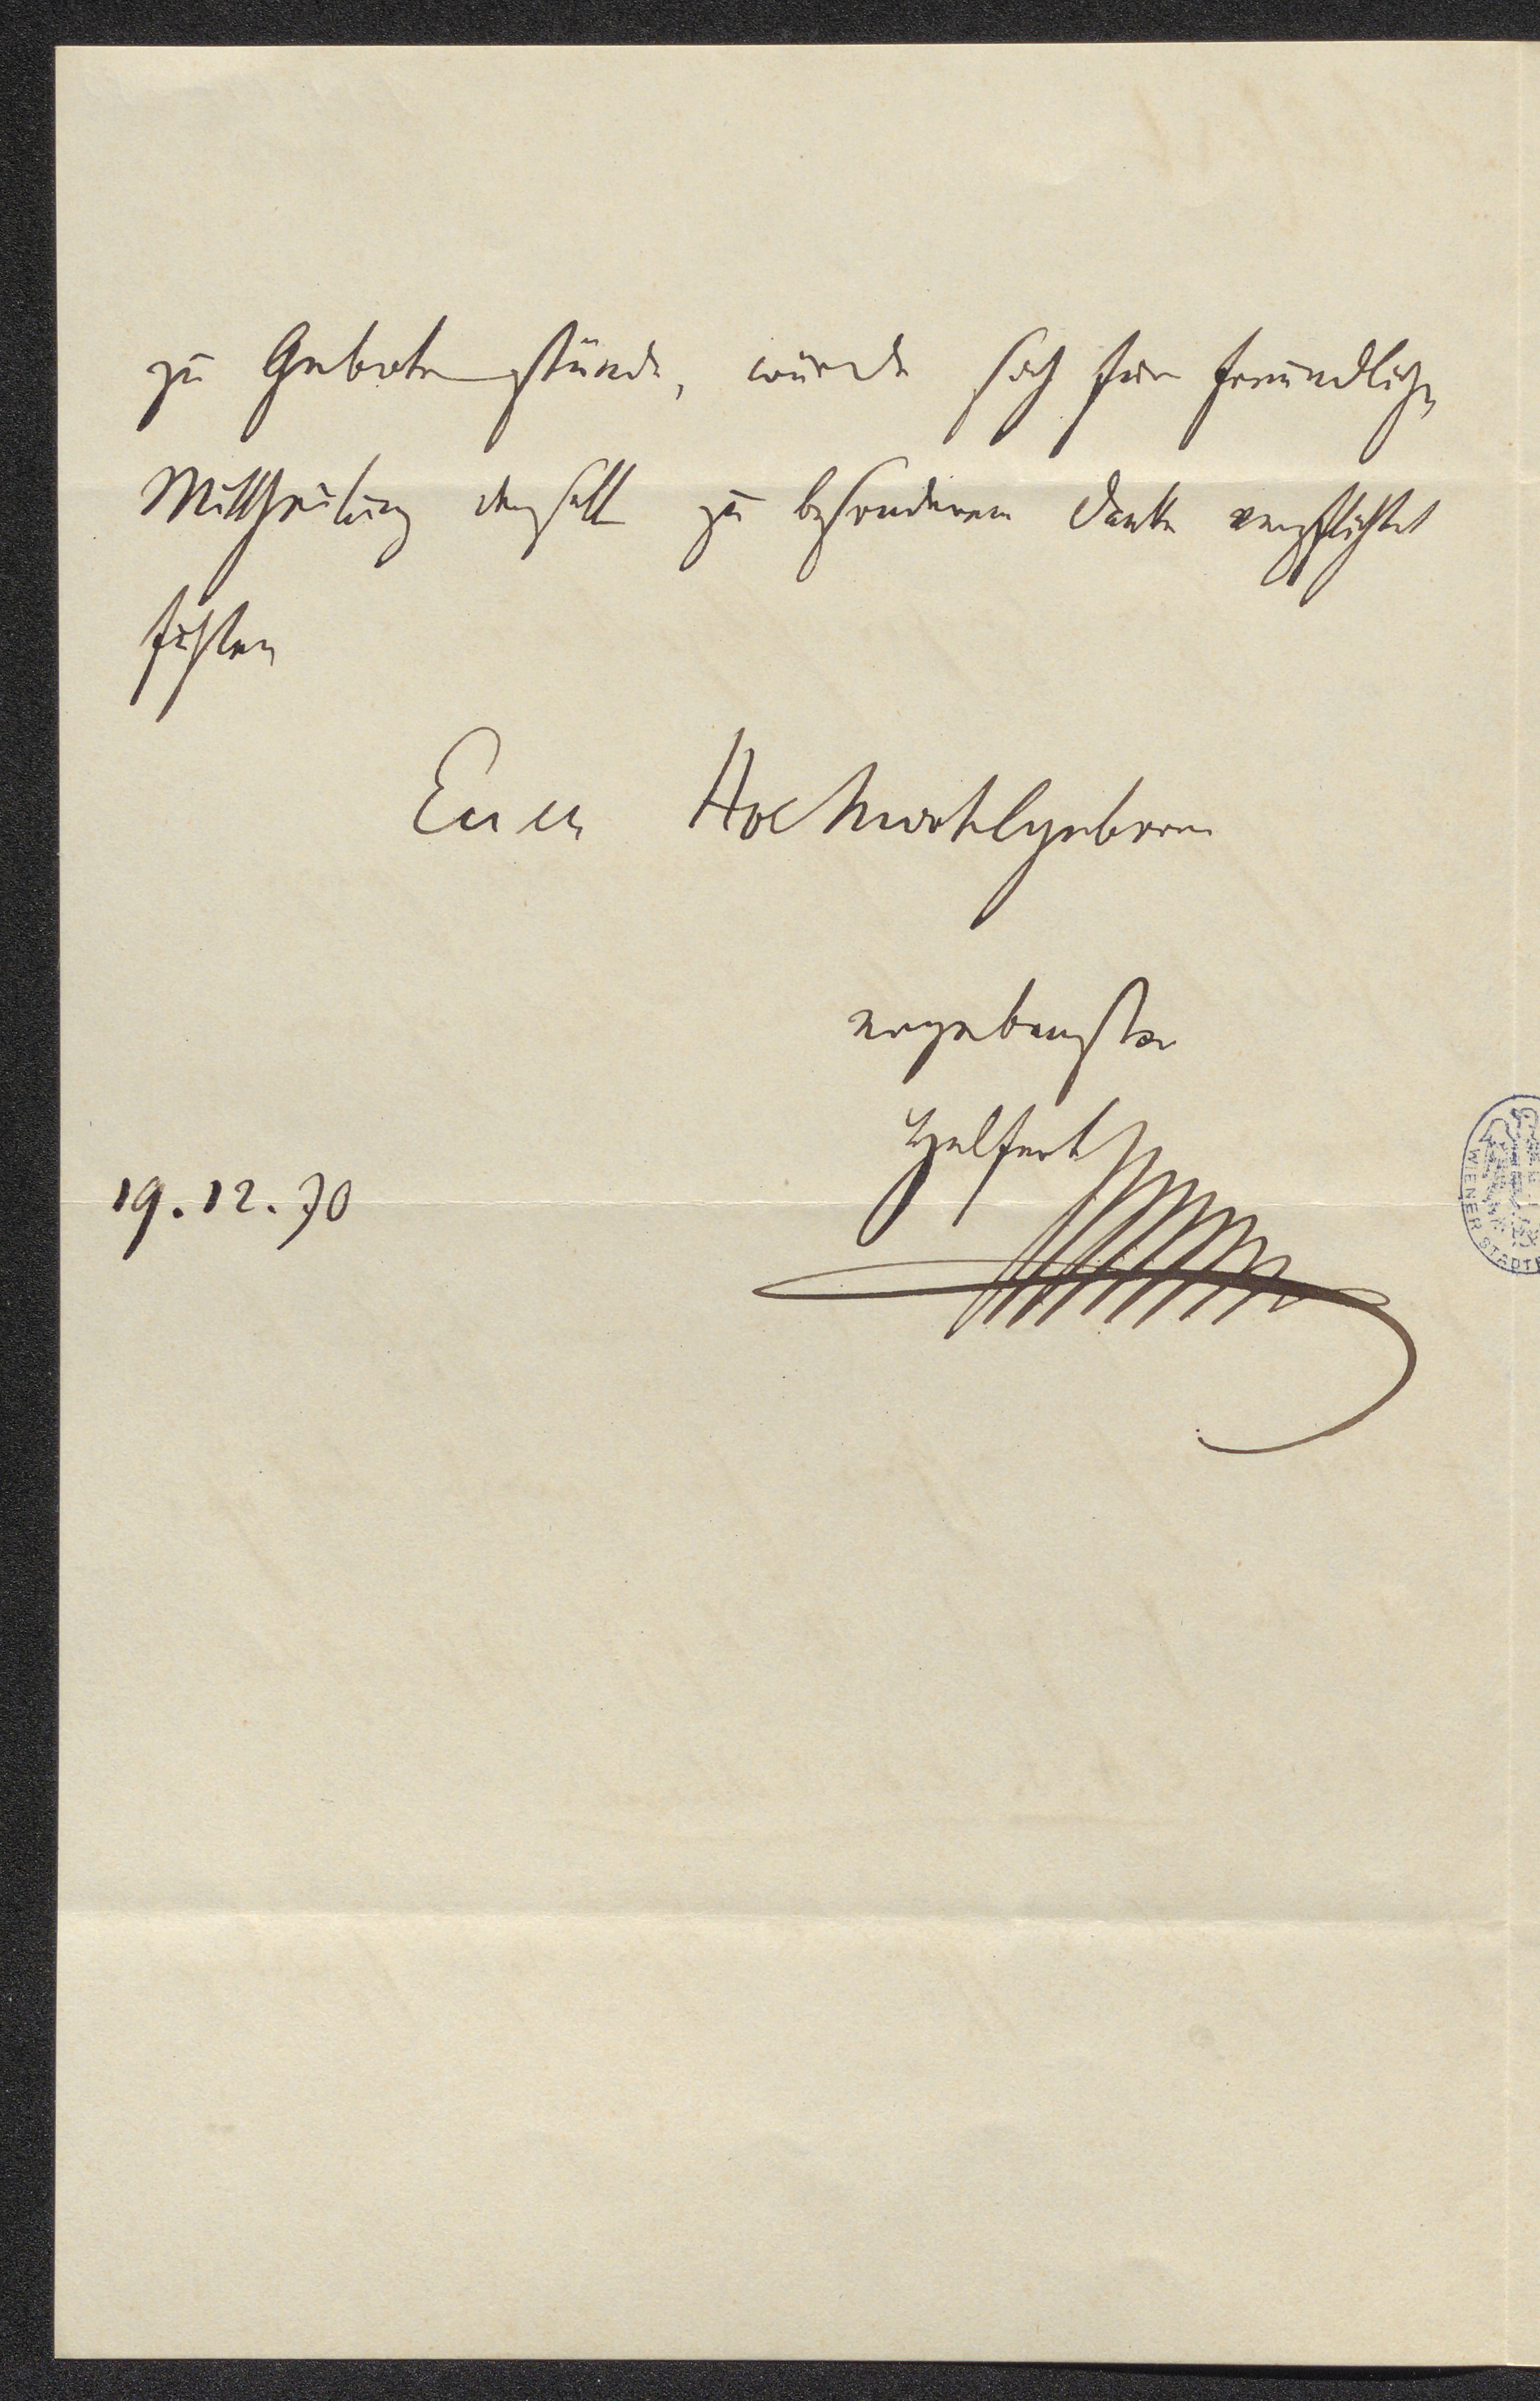 zu Gebote stünde, würde sich für freundliche
Mittheilung derselben zu besonderem Danke verpflichtet
fühlen
Euer Hochwohlgeboren
ergebenster
Helfert
19.12.70
WIENER STADT